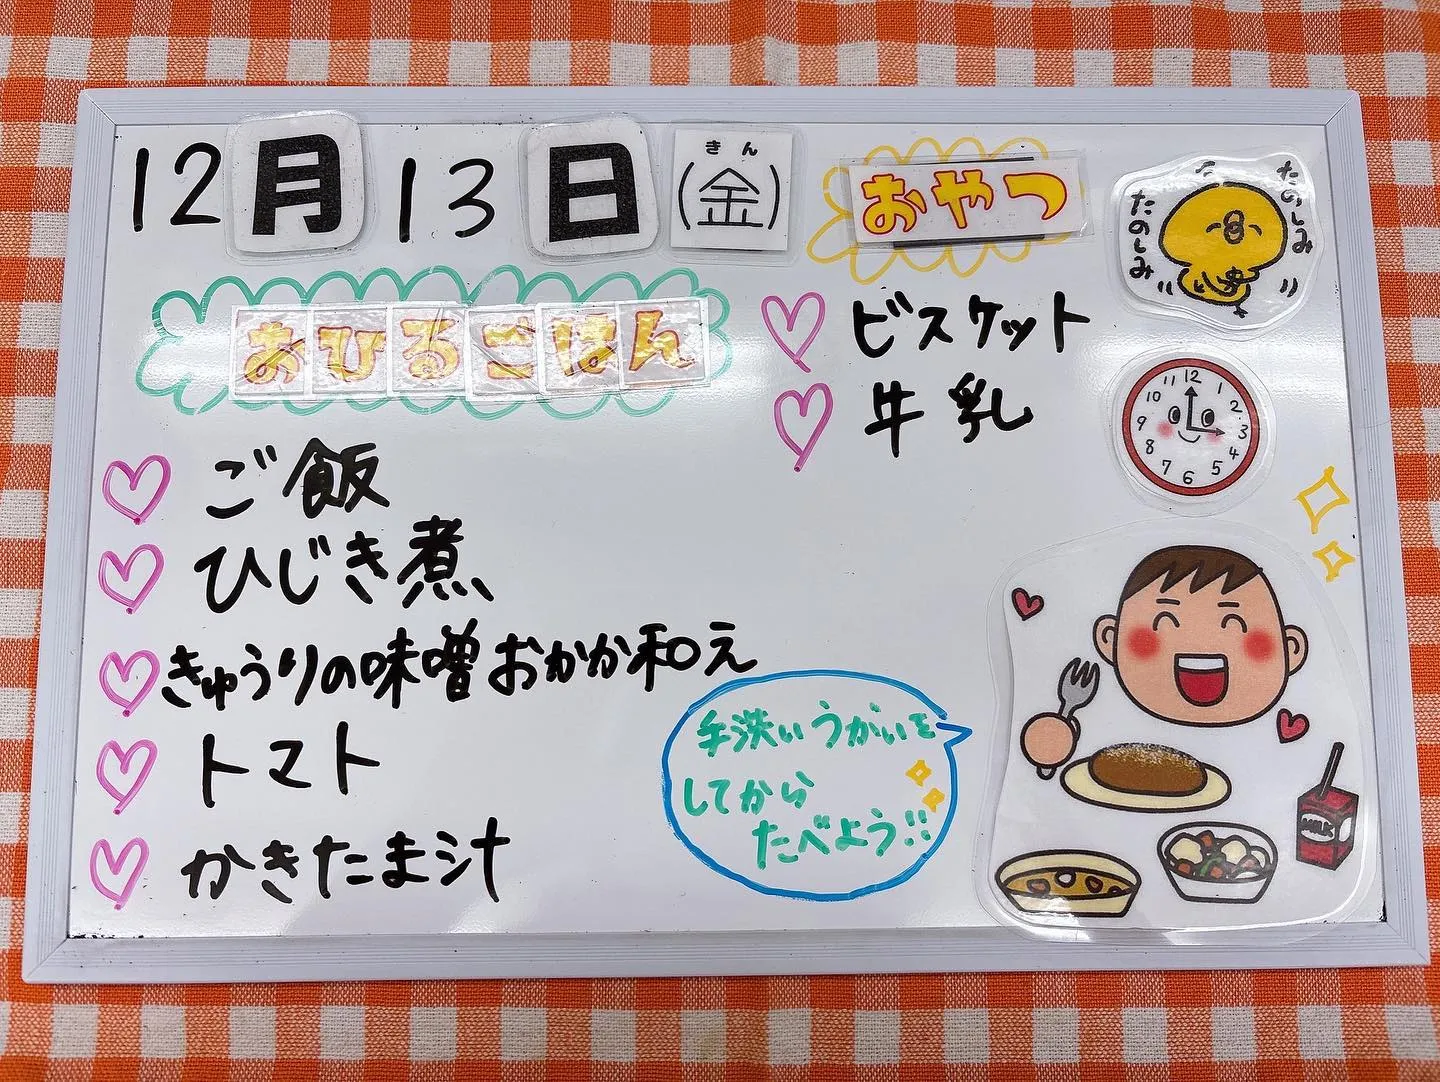 12月13日(金)
きん
おひるごはん
ご飯
ひじき煮
きゅうりの味噌おかか和え
トマト
かきたま汁
おやつ
ビスケット
牛乳
たのしみ
たのしみ
12
1
2
3
4
5
6
7
8
9
10
11
手洗いうがいを
してから
たべよう!!
MILK